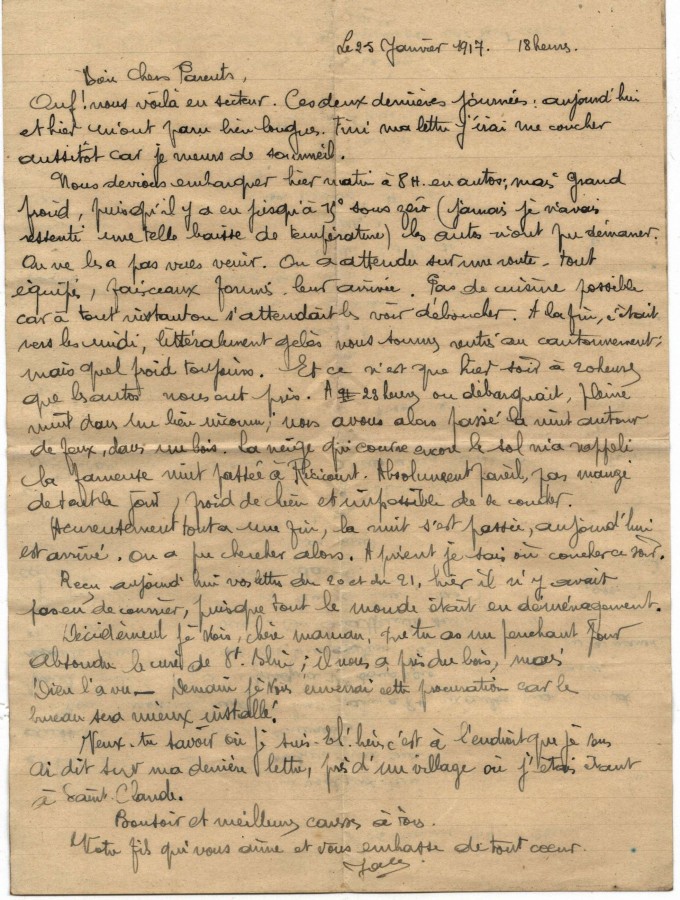 Le 25 Janvier 1917. 18 heures.
Bien Chers Parents,
Ouf! nous voilà en secteur. Ces deux dernières journées: aujourd'hui
et hier m'ont paru bien longues. Fini ma lettre j'irai me coucher
aussitôt car je meurs de sommeil.
Nous devions embarquer hier matin à 8 H. en autos; mais grand
froid, puisqu'il y a eu jusqu'à 15° sous zéro (jamais je n'avais
ressenti une telle baisse de température) les autos n'ont pu démarrer.
On ne les a pas vues venir. On a attendu sur une route - tout
équipés, faisceaux formés leur arrivée. Pas de cuisine possible
car à tout instant on s'attendait les voir déboucher. A la fin, c'était
vers les midi, littéralement gelés nous sommes rentrés au cantonnement;
mais quel froid toujours. Et ce n'est que hier soir à 20 heures
que les autos nous ont pris. A 23 heures on débarquait, pleine
nuit dans un lieu inconnu; nous avons alors passé la nuit autour
de feux, dans un bois. La neige qui couvre encore le sol m'a rappelé
la fameuse nuit passée à . Absolument pareil, pas mangé
de tout le jour, froid de chien et impossible de se coucher.
Heureusement tout a une fin, la nuit s'est passée, aujourd'hui
est arrivé. On a pu chercher alors. A présent je sais où coucher ce soir.
Reçu aujourd'hui vos lettres du 20 et du 21, hier il n'y avait
pas eu de courrier, puisque tout le monde était en déménagement.
Décidément je vois, chère maman, que tu as un penchant pour
absoudre le curé de St. ; il nous a pris du bois, mais
Dieu l'a vu - Demain je vous enverrai cette procuration car le
bureau sera mieux installé!
Veux-tu savoir où je suis - Eh! bien c'est à l'endroit que je vous
ai dit sur ma dernière lettre, près d'un village où j'étais
à Saint-Claude.
Bonsoir et meilleures caresses à tous.
Votre fils qui vous aime et vous embrasse de tout coeur.